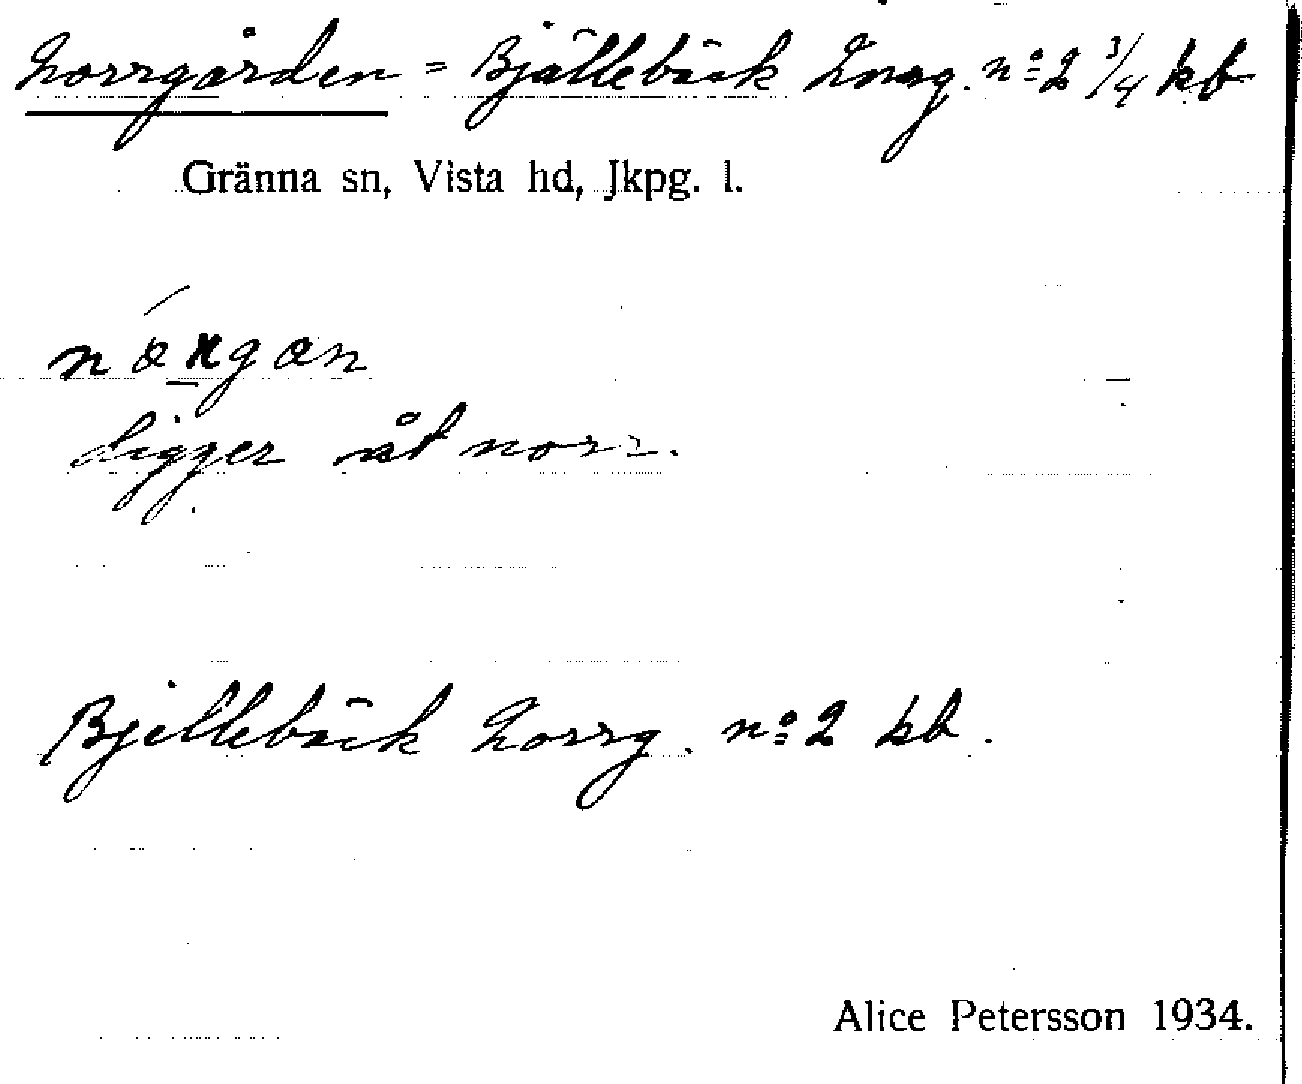 Norrgården = Bjällebäck Norrg. nº 2 3/4 kb
Gränna sn, Vista hd, Jkpg. l.
ligger åt norr.
Bjellebäck Norrg. nº 2 kb.
Alice Petersson 1934.